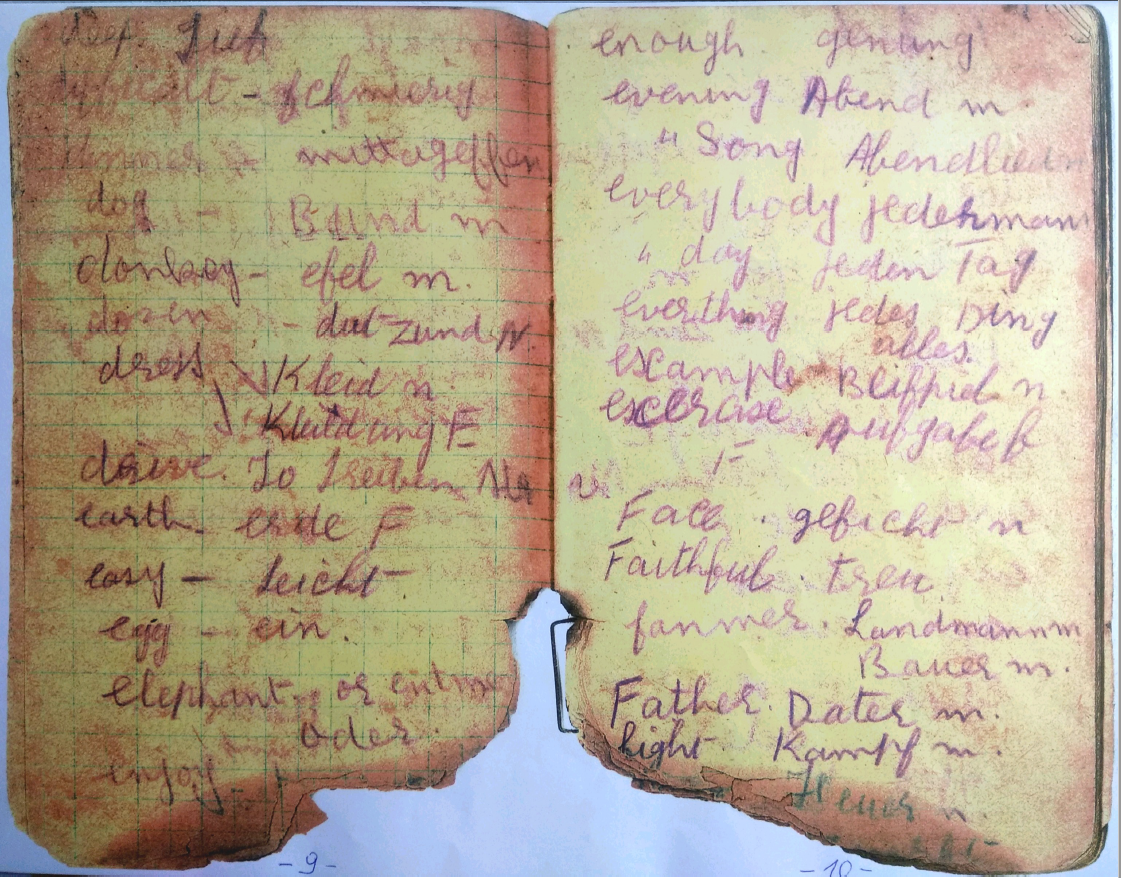 deep. Tief
difficult - schmierig
dinner - mittagessen
dog - Bund m
donkey - esel m.
dozen - dutzund N.
dress Kleid n
Kleidung F
drive. To treiben
earth. erde F
easy - leicht
egg - ein.
elephant or
oder.
enjoy
- 9 -
enough. genung
evening Abend m.
" Song Abendlied
everybody jederman
" day jeden Tag
everthing jedes Ding
alles.
example Beispiel n.
excercise Aufgabe f
F
Face. gesicht n
Faithful. Treu
farmer. Landmann m
Bauer m.
Father. Vater m.
fight Kampf m.
Feuer n.
- 10 -